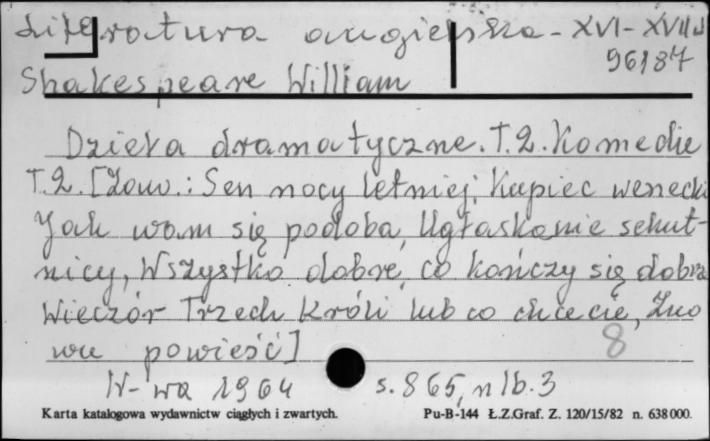 Literatura angielska - XVI - XVII w
96187
Shakespeare William
Dzieła dramatyczne. T.2. Komedie
T.2. [Zaw.: Sen nocy letniej, Kupiec wenecki
Jak wam się podoba, Ugłaskanie sekut-
nicy, Wszystko dobre, co kończy się dobrze
Wieczór Trzech Króli lub co chcecie, Zimo
wa powieść]
8
W-wa 1964 s. 865, nlb. 3
Karta katalogowa wydawnictw ciągłych i zwartych. Pu-B-144 Ł.Z.Graf. Z. 120/15/82 n. 638000.